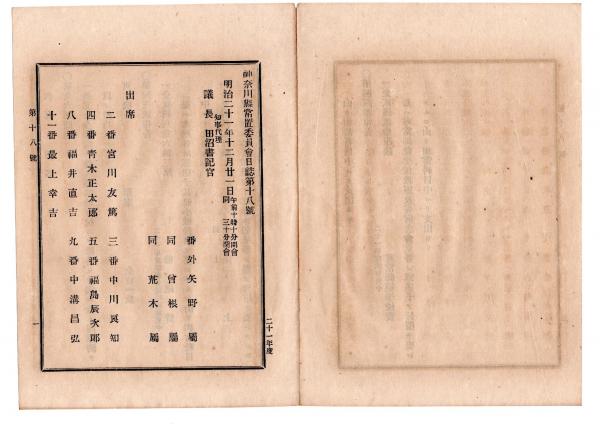 神奈川縣常置委員會日誌第十八號
明治二十一年十二月廿一日午前十時十分開會
同 三十分閉會
議長 知事代理 田沼書記官
番外 矢野屬
同 曾根屬
同 荒木屬
出席
二番 宮川友篤 三番 中川良知
四番 青木正太郎 五番 福島辰次郎
八番 福井直吉 九番 中溝昌弘
十一番 最上幸吉
二十一年度
第十八號
一